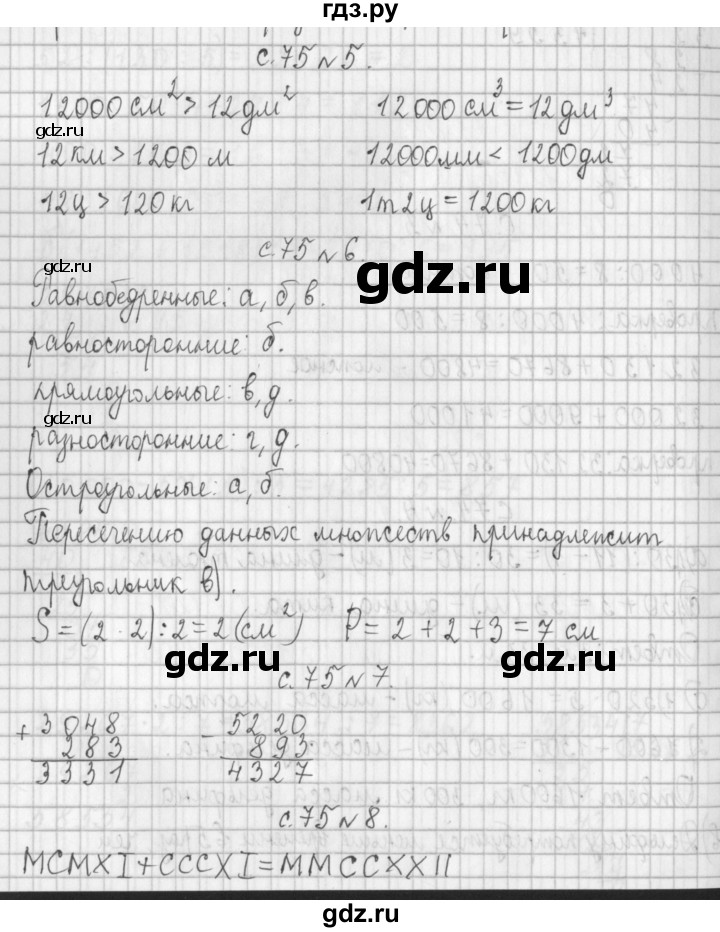 гдз.ру
с.75 № 5.
12000 см² > 12 дм² 12000 см³ = 12 дм³
gdz.ru gdz.ru
12 км > 1200 м 12000 мм < 1200 дм
12ц > 120 кг 1т2ц = 1200 кг
с.75 № 6.
gdz.ru
Равнобедренные: а, б, в.
равносторонние: б.
прямоугольные: в, д.
gdz.ru gdz.ru
разносторонние: г, д.
Остроугольные: а, б.
Пересечению данных множеств принадлежит
треугольник в).
S = (2 · 2) : 2 = 2 (см²) P = 2 + 2 + 3 = 7 см
gdz.ru gdz.ru
с.75 № 7.
+ 3048 - 5220
283 893
3331 4327
с.75 № 8.
MCMXI + CCCXI = MMCCXXII
gdz.ru gdz.ru
gdz.ru